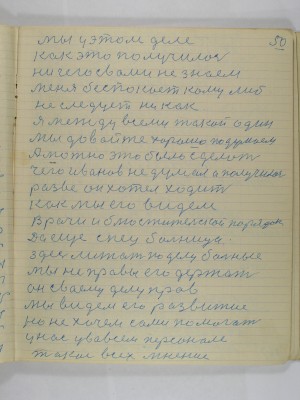 50
мы у этом деле
как это получилос
ничего с вами не знаем
меня беспокоет кому либ
не следует ни как
я между всеми такой один
мы довайте хорошо подумаем
А можно это было сделат
чего иванов не думал а получилос
разве он хотел ходит
как мы его видем
врачи и блюстителской порядок
Да еще спец болница
здес лижат по делу болные
мы не правы его держат
он сваему делу прав
мы видем его развитие
но не хочем сами помогат
у нас у вавсем персонале
такое всех мнение